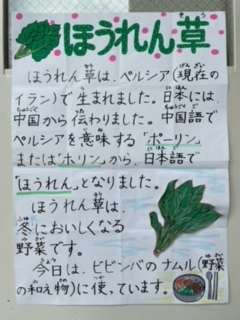 ほうれん草
ほうれん草は、ペルシア(現在の
イラン)で生まれました。日本には、
中国から伝わりました。中国語で
ペルシアを意味する「ホーリン」
または「ホリン」から、日本語で
「ほうれん」となりました。
ほうれん草は、
冬においしくなる
野菜です。
今日は、ビビンバのナムル(野菜
の和え物)に使っています。